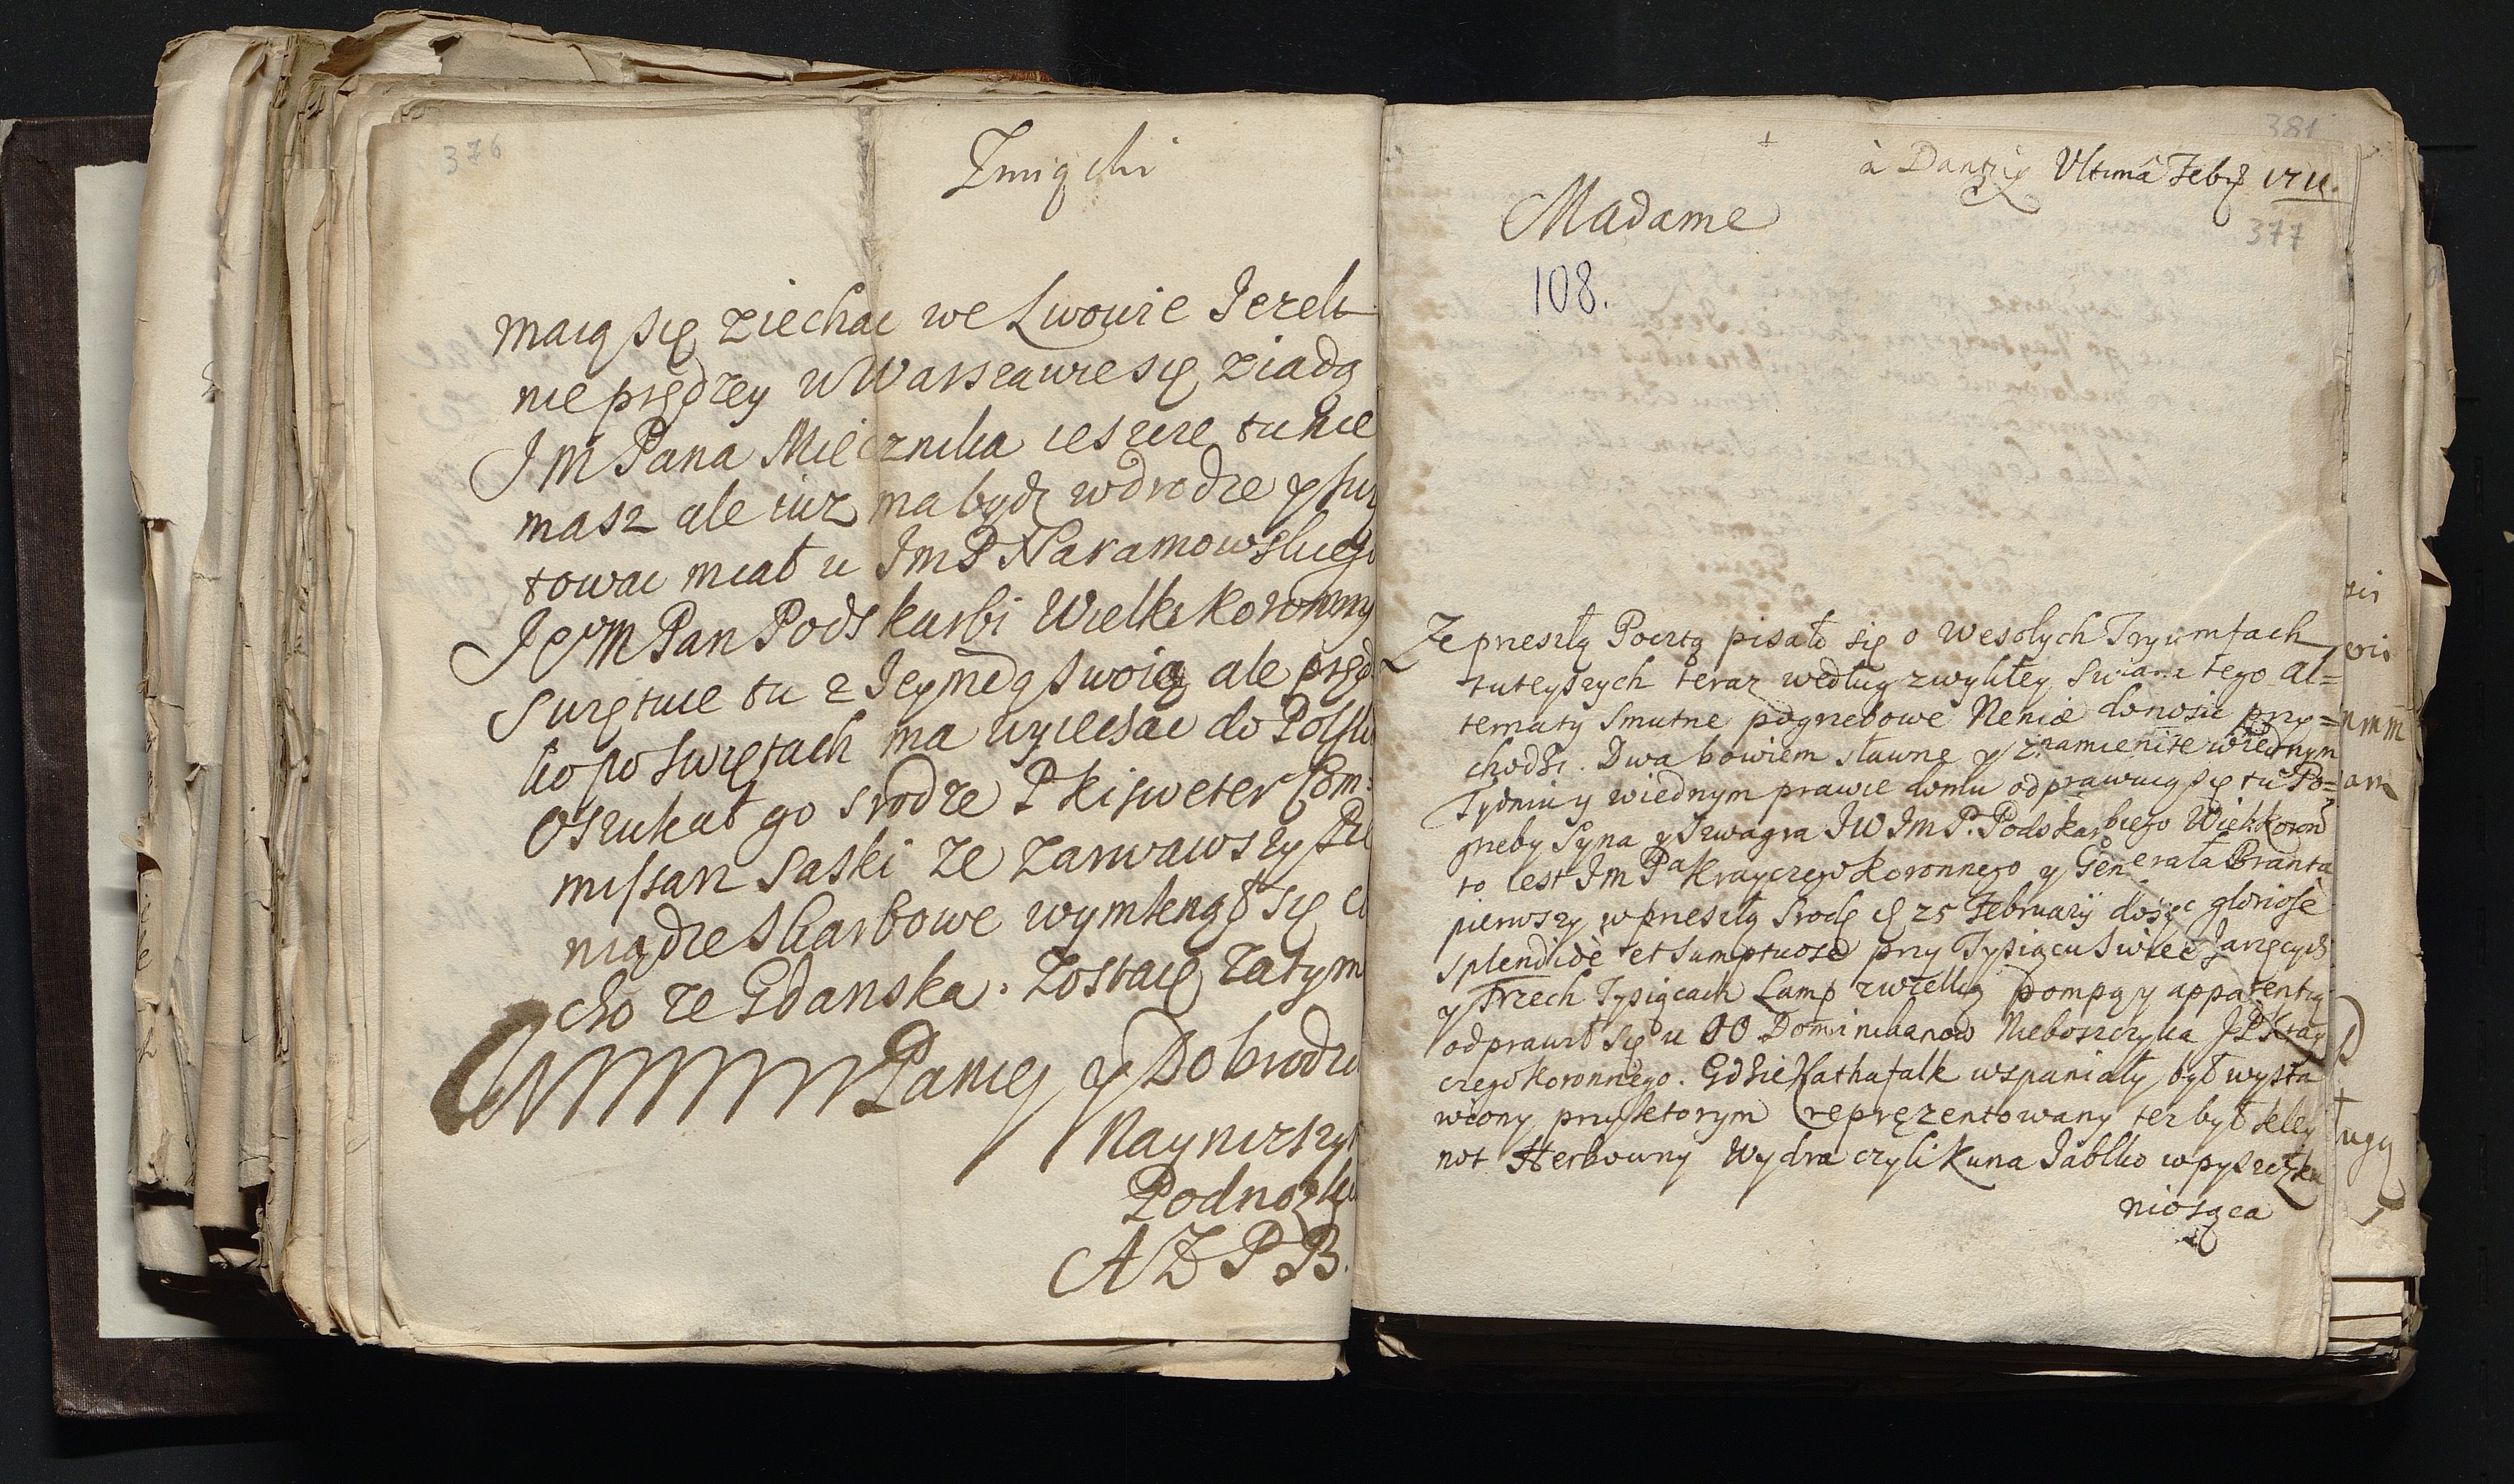 376
Zmiącki
maią się ziechac we Lwowie Jezeli
nie prędzey w Warszawie się ziadą
Jm Pana Miecznika ieszcze tu nie
masz ale iuz ma bydz w drodze y
towac miał u JmP Naramowskiego
JeoM Pan Podskarbi Wielki Koronny
tu z Jeymcią Swoią ale pręd
ko po Swiętach ma wyiechac do Polski
Oszukał go srodze P Kisweter Com:
missarz Saski ze Zarwawszy Pie
niądze Skarbowe wymkną̨ł się ci
cho ze Gdanska. Zostaię zatym
Paniey y Dobrodzi
Naynizszy
Podnozk
A Z P B.
381
à Dantzig Ultimâ Febr 1711.
Madame
377
108.
Ze przeszłą Pocztą pisało się o Wesołych Tryumfach
tuteyszych teraz według zwykłey Swiata tego al=
ternaty Smutne pogrzebowe Neniæ donosić przy=
chodzi. Dwa bowiem sławne y znamienite w iednym
Tydniu y w iednym prawie domu odprawuią się tu Po=
grzeby Syna y Szwagra JW Jm P. Podskarbiego Wielk Koron
to iest Jm Pa Krayczego Koronnego y Generała Branta
pierwszy w przeszłą Srodę 25 Februarij dosyc gloriose
splendidè et Sumptuose przy Tysiącu Swiec Jarzęcych
y Trzech Tysiącach Lamp z wielką Pompą y apparentią
odprawił się u OO Dominikanow Nieboszczyka JP Kray
czego Koronnego. Gdzie Kathafalk wspaniały był wysta
wiony przy ktorym reprezentowany tez był kley
not Herbowny Wydra czyli Kuna Jabłko w pyszczku
niosąca